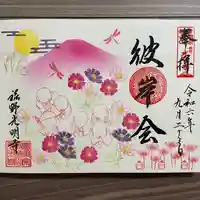 奉拝
彼岸会
令和六年
九月二十
裾野光明寺